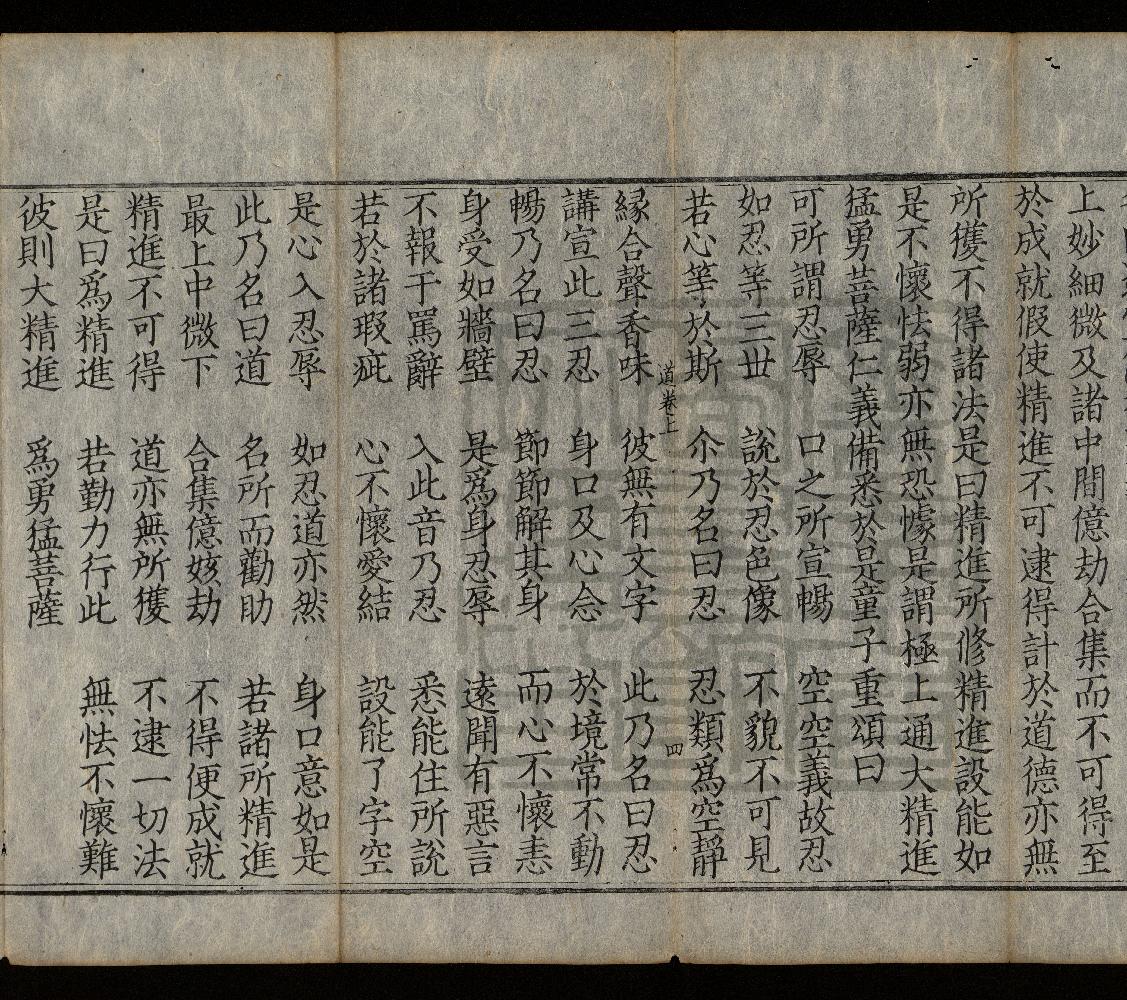 上妙細微及諸中間億劫合集而不可得至
於成就假使精進不可逮得計於道德亦無
所獲不得諸法是曰精進所修精進設能如
是不懷怯弱亦無恐懅是謂極上通大精進
猛勇菩薩仁義備悉於是童子重頌曰
可所謂忍辱 口之所宣暢 空空義故忍
如忍等三世 說於忍色像 不貌不可見
若心等於斯 尒乃名曰忍 忍類爲空靜
道卷上 四
緣合聲香味 彼無有文字 此乃名曰忍
講宣此三忍 身口及心念 於境常不動
暢乃名曰忍 節節解其身 而心不懷恚
身受如牆壁 是爲身忍辱 遠聞有惡言
不報于罵辭 入此音乃忍 悉能住所說
若於諸瑕疵 心不懷愛結 設能了字空
是心入忍辱 如忍道亦然 身口意如是
此乃名曰道 名所而勸助 若諸所精進
最上中微下 合集億姟劫 不得便成就
精進不可得 道亦無所獲 不逮一切法
是曰爲精進 若勤力行此 無怯不懷難
彼則大精進 爲勇猛菩薩